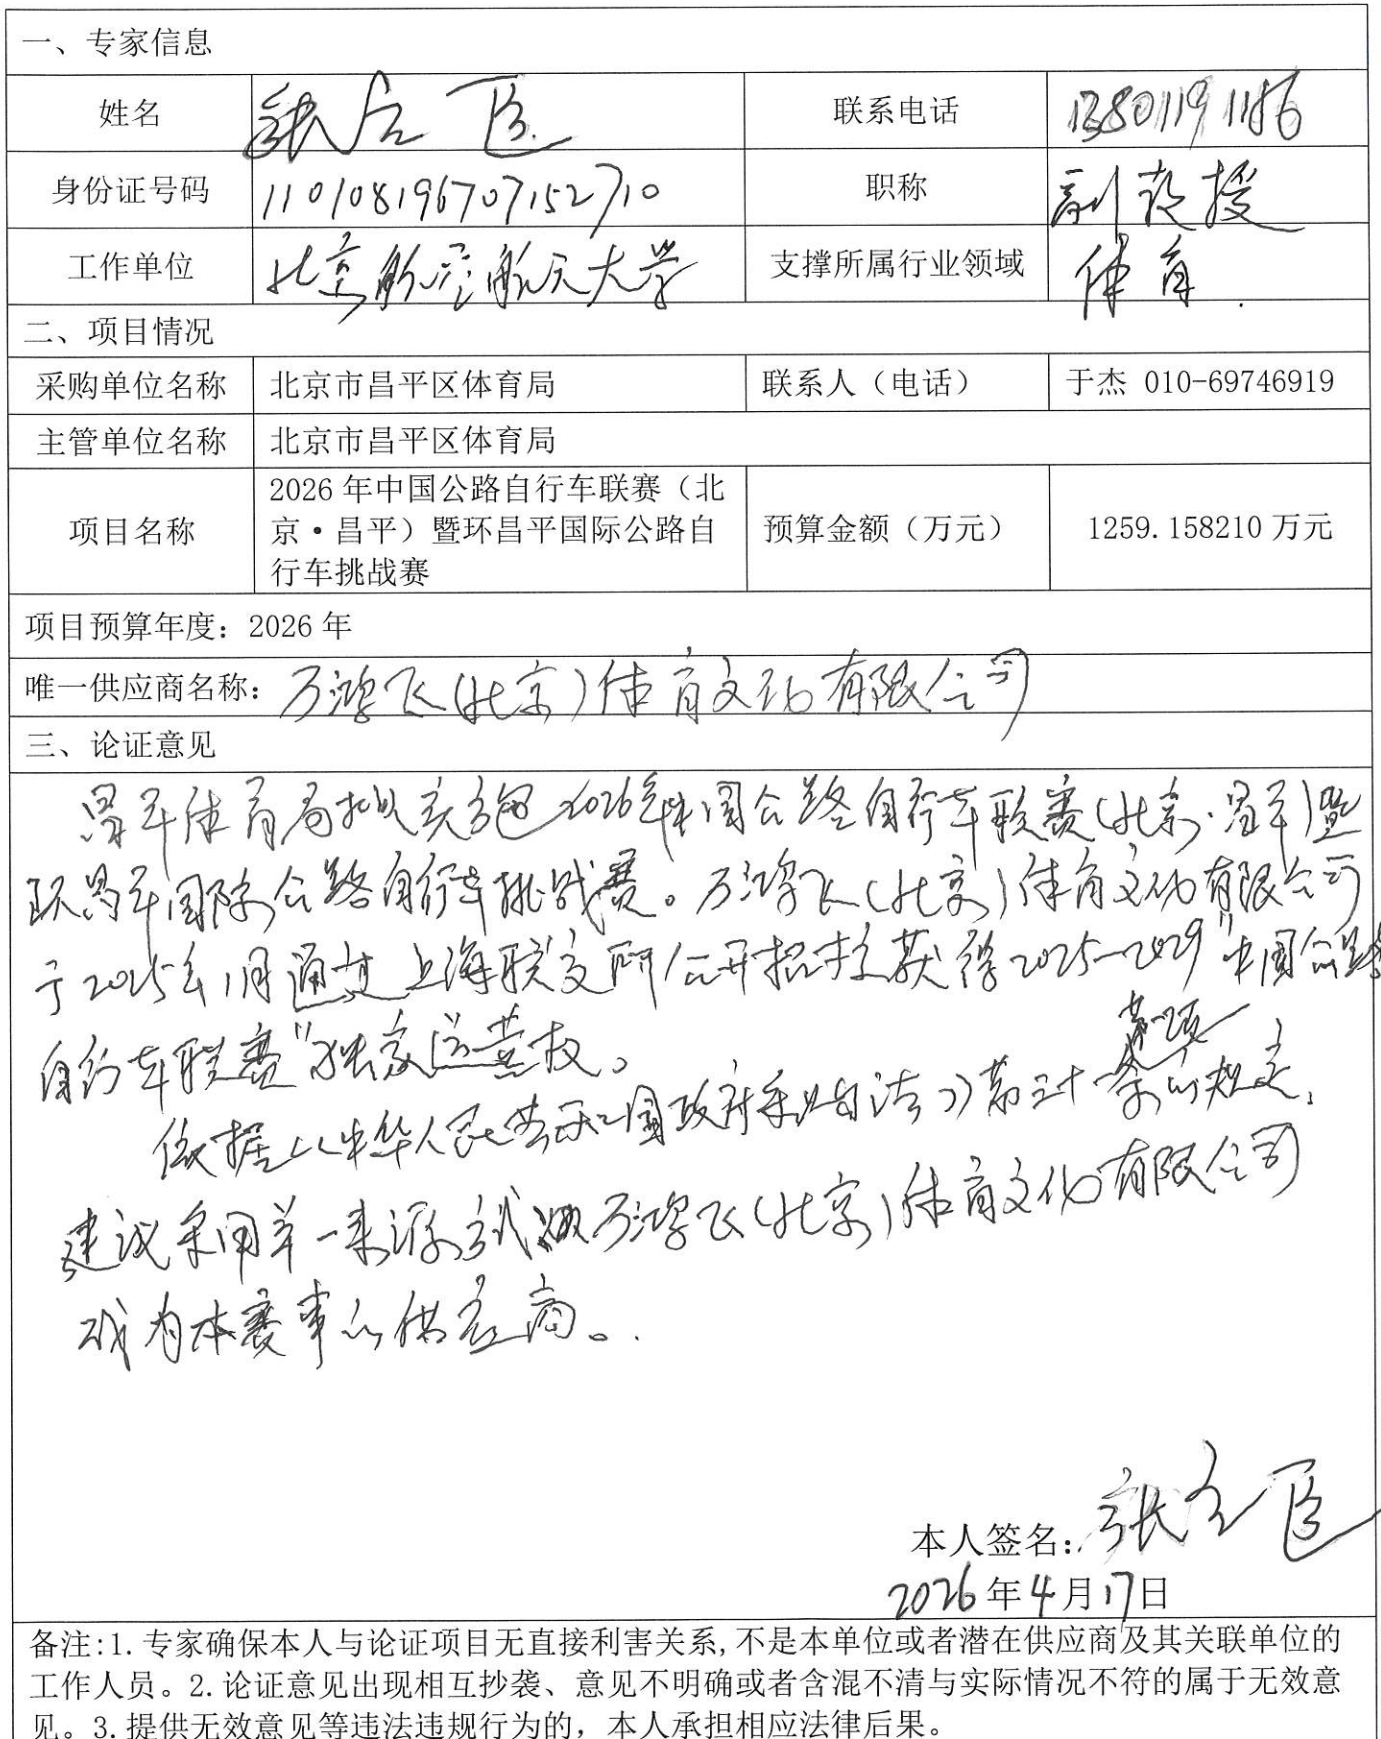 一、专家信息
姓名 张 联系电话
身份证号码 110108196707152710 职称 副教授
工作单位 北京航空航天大学 支撑所属行业领域 体育
二、项目情况
采购单位名称 北京市昌平区体育局 联系人（电话） 于杰 010-69746919
主管单位名称 北京市昌平区体育局
项目名称 2026年中国公路自行车联赛（北
京·昌平）暨环昌平国际公路自
行车挑战赛
预算金额（万元） 1259.158210万元
项目预算年度：2026年
唯一供应商名称：万鸿飞(北京)体育文化有限公司
三、论证意见
昌平体育局拟实施2026年中国公路自行车联赛(北京·昌平)暨
环昌平国际公路自行车挑战赛。万鸿飞(北京)体育文化有限公司
于2025年1月通过上海联交所公开招标获得2025—2029"中国公路
自行车联赛"独家运营权。
依据《中华人民共和国政府采购法》第三十一条第一项的规定，
建议采用单一来源方式 万鸿飞(北京)体育文化有限公司
成为本赛事的供应商。
本人签名：张
2026年4月17日
备注:1.专家确保本人与论证项目无直接利害关系,不是本单位或者潜在供应商及其关联单位的
工作人员。2.论证意见出现相互抄袭、意见不明确或者含混不清与实际情况不符的属于无效意
见。3.提供无效意见等违法违规行为的，本人承担相应法律后果。